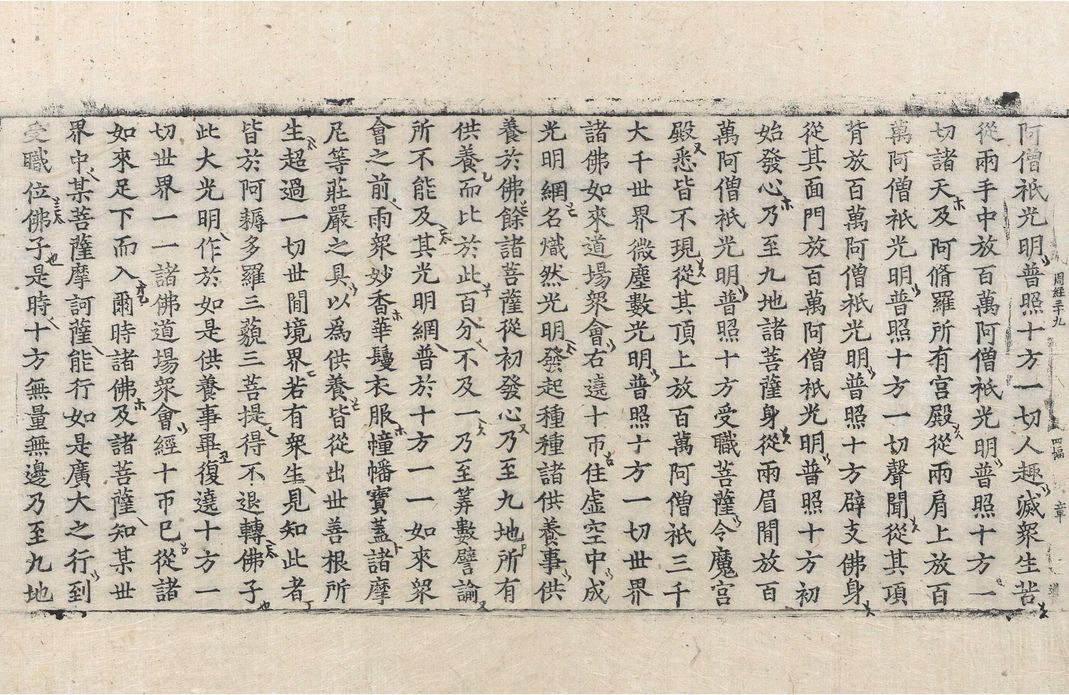 阿僧祇光明普照十方一切人趣滅衆生苦
從兩手中放百萬阿僧祇光明普照十方一
切諸天及阿脩羅所有宮殿從兩肩上放百
萬阿僧祇光明普照十方一切聲聞從其項
背放百萬阿僧祇光明普照十方辟支佛身
從其面門放百萬阿僧祇光明普照十方初
始發心乃至九地諸菩薩身從兩眉閒放百
萬阿僧祇光明普照十方受職菩薩令魔宮
殿悉皆不現從其頂上放百萬阿僧祇三千
大千世界微塵數光明普照十方一切世界
諸佛如來道場衆會右遶十帀住虛空中成
光明網名熾然光明發起種種諸供養事供
養於佛餘諸菩薩從初發心乃至九地所有
供養而比於此百分不及一乃至筭數譬諭
所不能及其光明網普於十方一一如來衆
會之前雨衆妙香華鬘衣服幢幡寶蓋諸摩
尼等莊嚴之具以爲供養皆從出世善根所
生超過一切世閒境界若有衆生見知此者
皆於阿耨多羅三藐三菩提得不退轉佛子
此大光明作於如是供養事畢復遶十方一
切世界一一諸佛道場衆會經十帀已從諸
如來足下而入爾時諸佛及諸菩薩知某世
界中某菩薩摩訶薩能行如是廣大之行到
受職位佛子是時十方無量無邊乃至九地
周經三十九
四幅
章